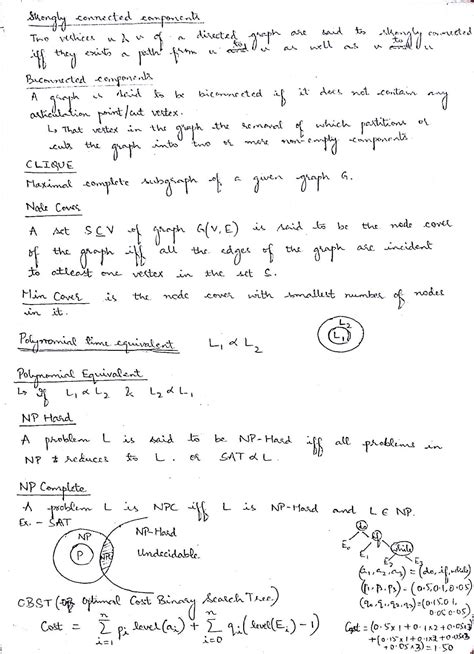 Strongly connected components
Two vertices u & v of a directed graph are said to strongly connected
iff they exists a path from u to v as well as v to u
Biconnected components
A graph is said to be biconnected if it does not contain any
articulation point/cut vertex.
↳ That vertex in the graph the removal of which partitions or
cuts the graph into two or more non-empty components.
CLIQUE
Maximal complete subgraph of a given graph G.
Node Cover
A set S⊆V of graph G(V,E) is said to be the node cover
of the graph iff all the edges of the graph are incident
to atleast one vertex in the set S.
Min Cover is the node cover with smallest number of nodes
in it.
L2
L1
Polynomial time equivalent L1 ∝ L2
Polynomial Equivalent
↳ If L1 ∝ L2 & L2 ∝ L1
NP Hard
A problem L is said to be NP-Hard iff all problems in
NP reduces to L. or SAT ∝ L.
NP Complete
A problem L is NPC iff L is NP-Hard and L ∈ NP.
Ex. - SAT
NP
P
NP-Hard
Undecidable.
do
if
while
E0
E1
E2
E3
(a1, a2, a3) = (do, if, while)
(p1, p2, p3) = (0.5, 0.1, 0.05)
(q0, q1, q2, q3) = (0.15, 0.1,
0.05, 0.05)
OBST (or Optimal Cost Binary Search Tree)
Cost = Σ i=1 n pi level(ai) + Σ i=0 n qi (level(Ei) - 1)
Cost = (0.5x1 + 0.1x2 + 0.05x3)
+ (0.15x1 + 0.1x2 + 0.05x3
+ 0.05x3) = 1.50